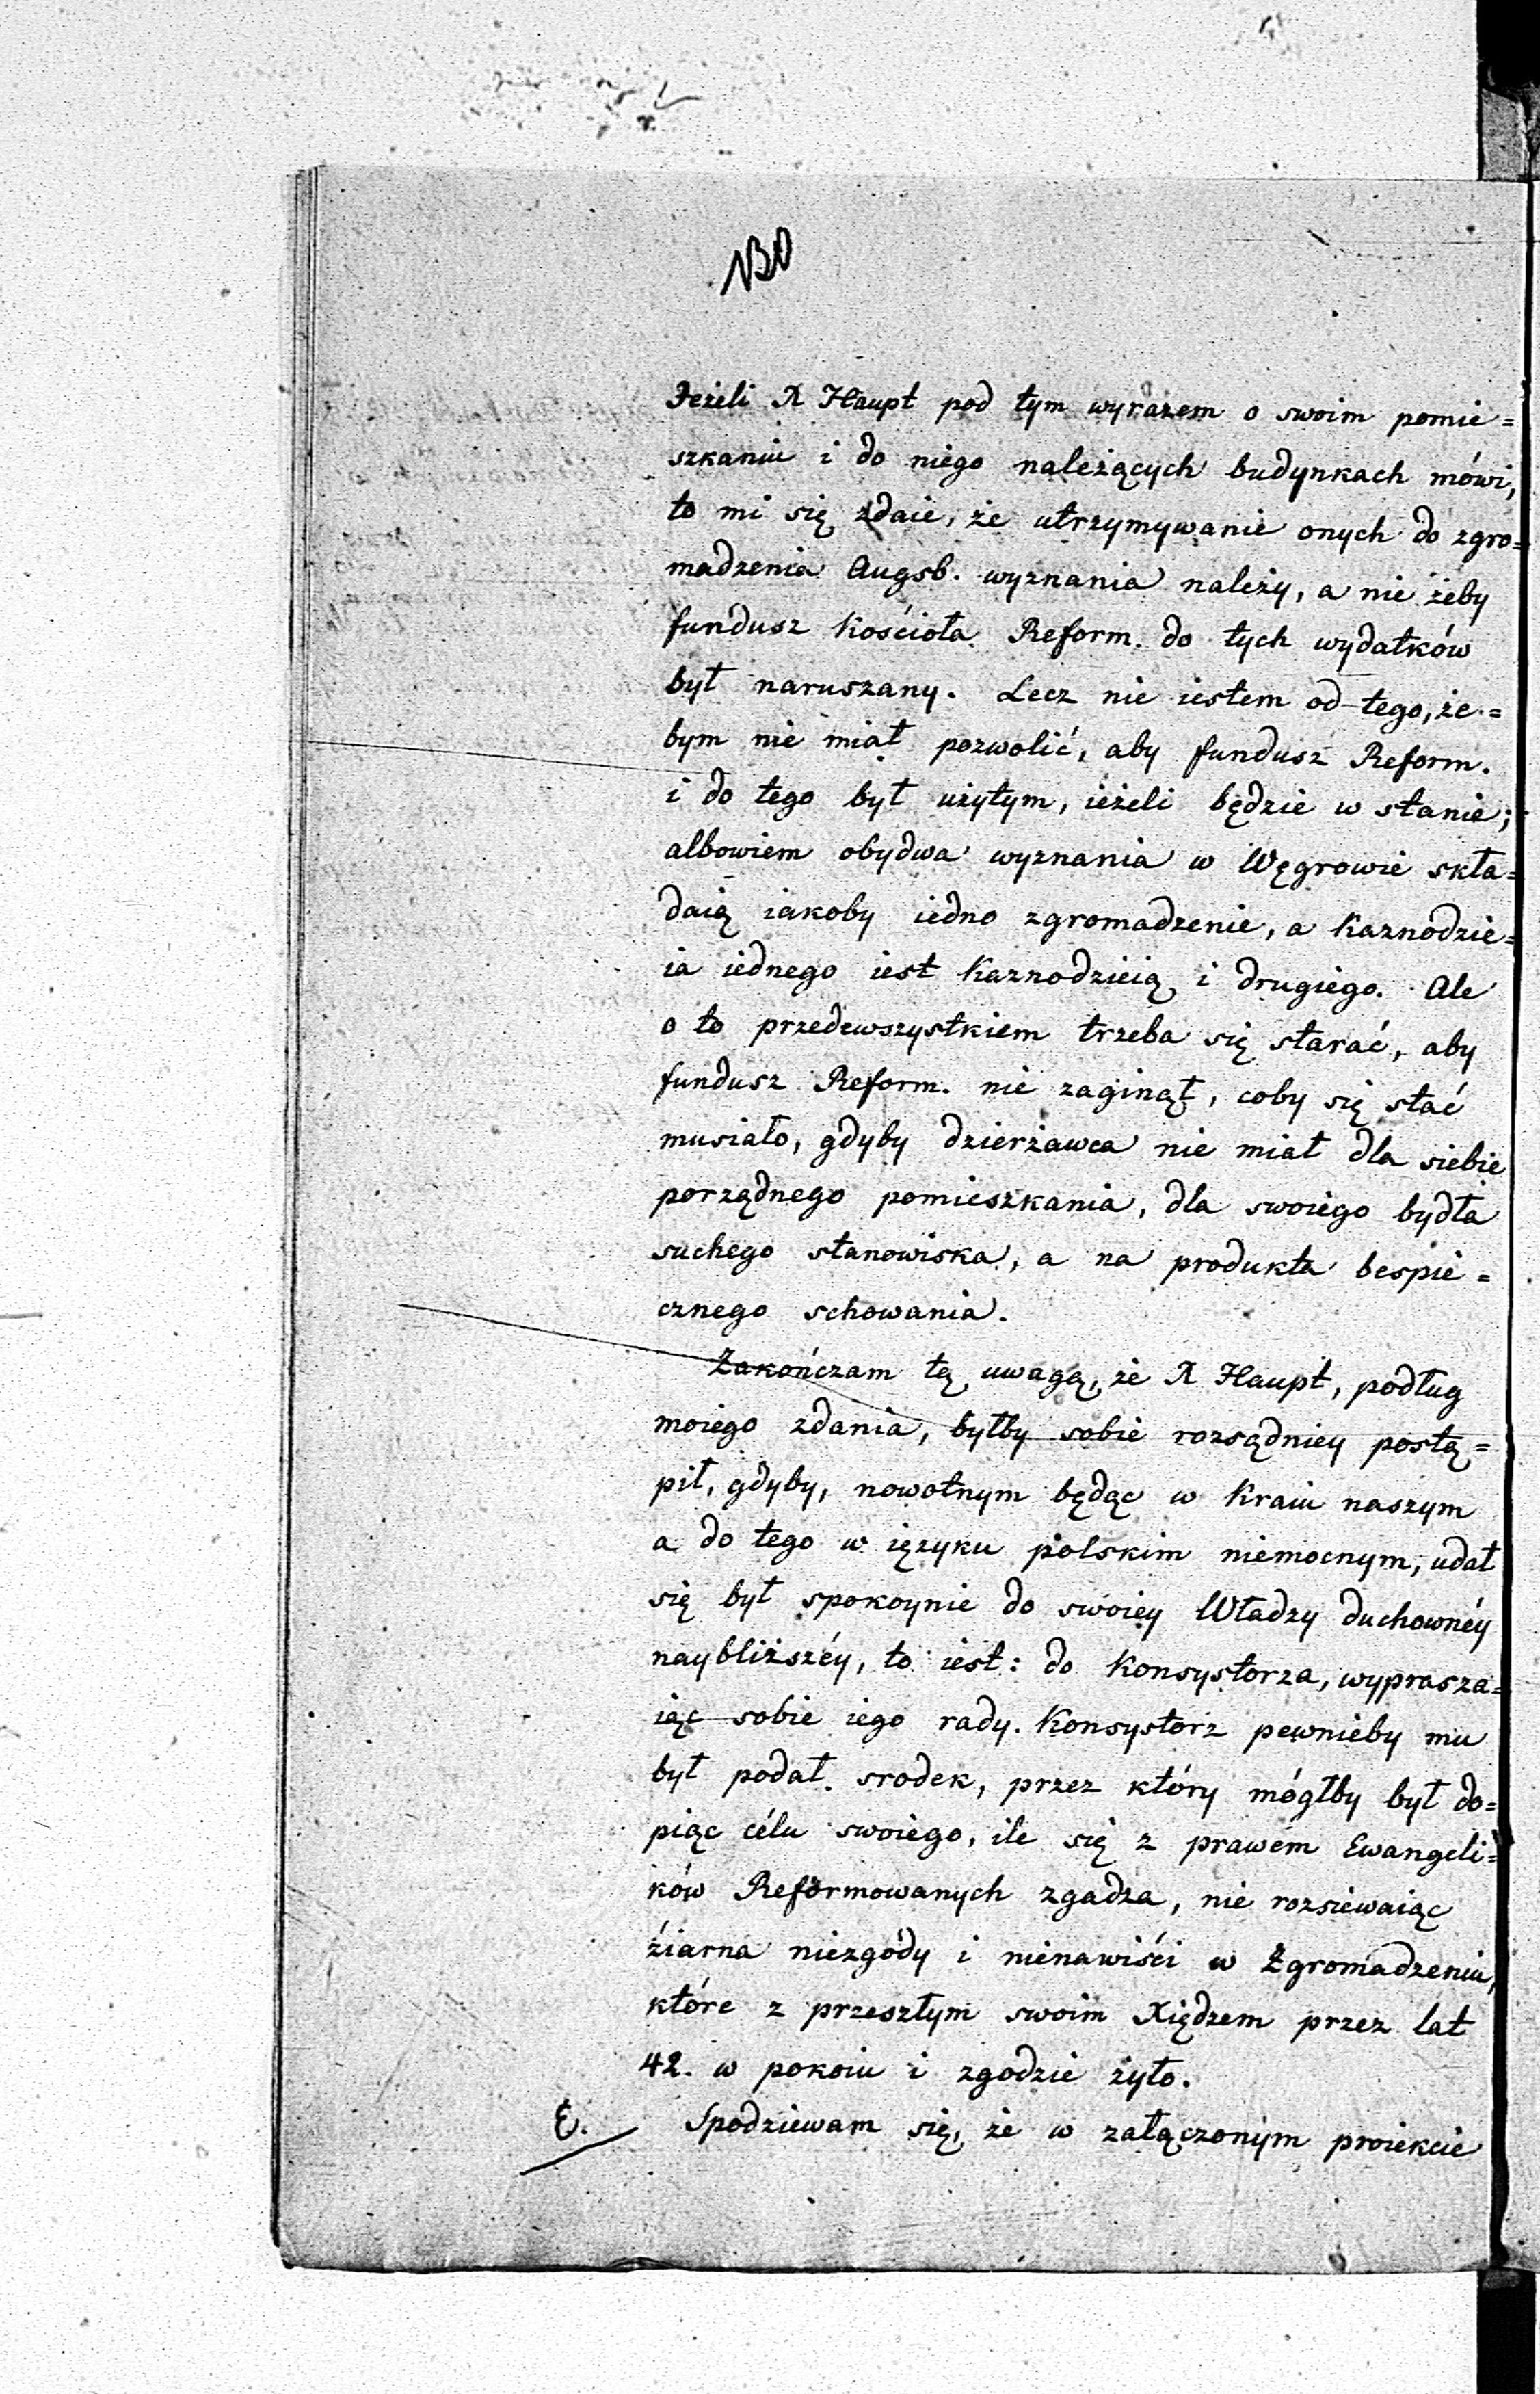 130
Jeżeli X Haupt pod tym wyrazem o swoim pomie=
szkaniu i do niego należących budynkach mówi,
to mi się zdaie, że utrzymywanie onych do zgro=
madzenia Augsb. wyznania należy, a nie żeby
fundusz Kościoła Reform. do tych wydatków
był naruszany. Lecz nie iestem od tego, że=
bym nie miał pozwolić, aby fundusz Reform.
i do tego był użytym, ieżeli będzie w stanie;
albowiem obydwa wyznania w Węgrowie skła=
daią iakoby iedno zgromadzenie, a Kaznodzie=
ia iednego iest Kaznodzieią i drugiego. Ale
o to przedewszystkiem trzeba się starać, aby
fundusz Reform. nie zaginął, coby się stać
musiało, gdyby dzierżawca nie miał dla siebie
porządnego pomieszkania, dla swoiego bydła
suchego stanowiska, a na produkta bespie=
cznego schowania.
Zakończam tą uwagą, że X Haupt, podług
moiego zdania, byłby sobie rozsądniey postą=
pił, gdyby, nowotnym będąc w Kraiu naszym
a do tego w ięzyku polskim niemocnym, udał
się był spokoynie do swoiey Władzy duchownéy
naybliższéy, to iest: do Konsystorza, wyprasza=
iąc sobie iego rady. Konsystorz pewnieby mu
był podał srodek, przez który mógłby był do=
piąc célu swoiego, ile się z prawem Ewangeli=
ków Reformowanych zgadza, nie rozsiewaiąc
źiarna niezgódy i nienawiści w Zgromadzeniu,
które z przeszłym swoim Xiędzem przez lat
42. w pokoiu i zgodzie żyło.
E. Spodziewam się, że w załączonym proiekcie